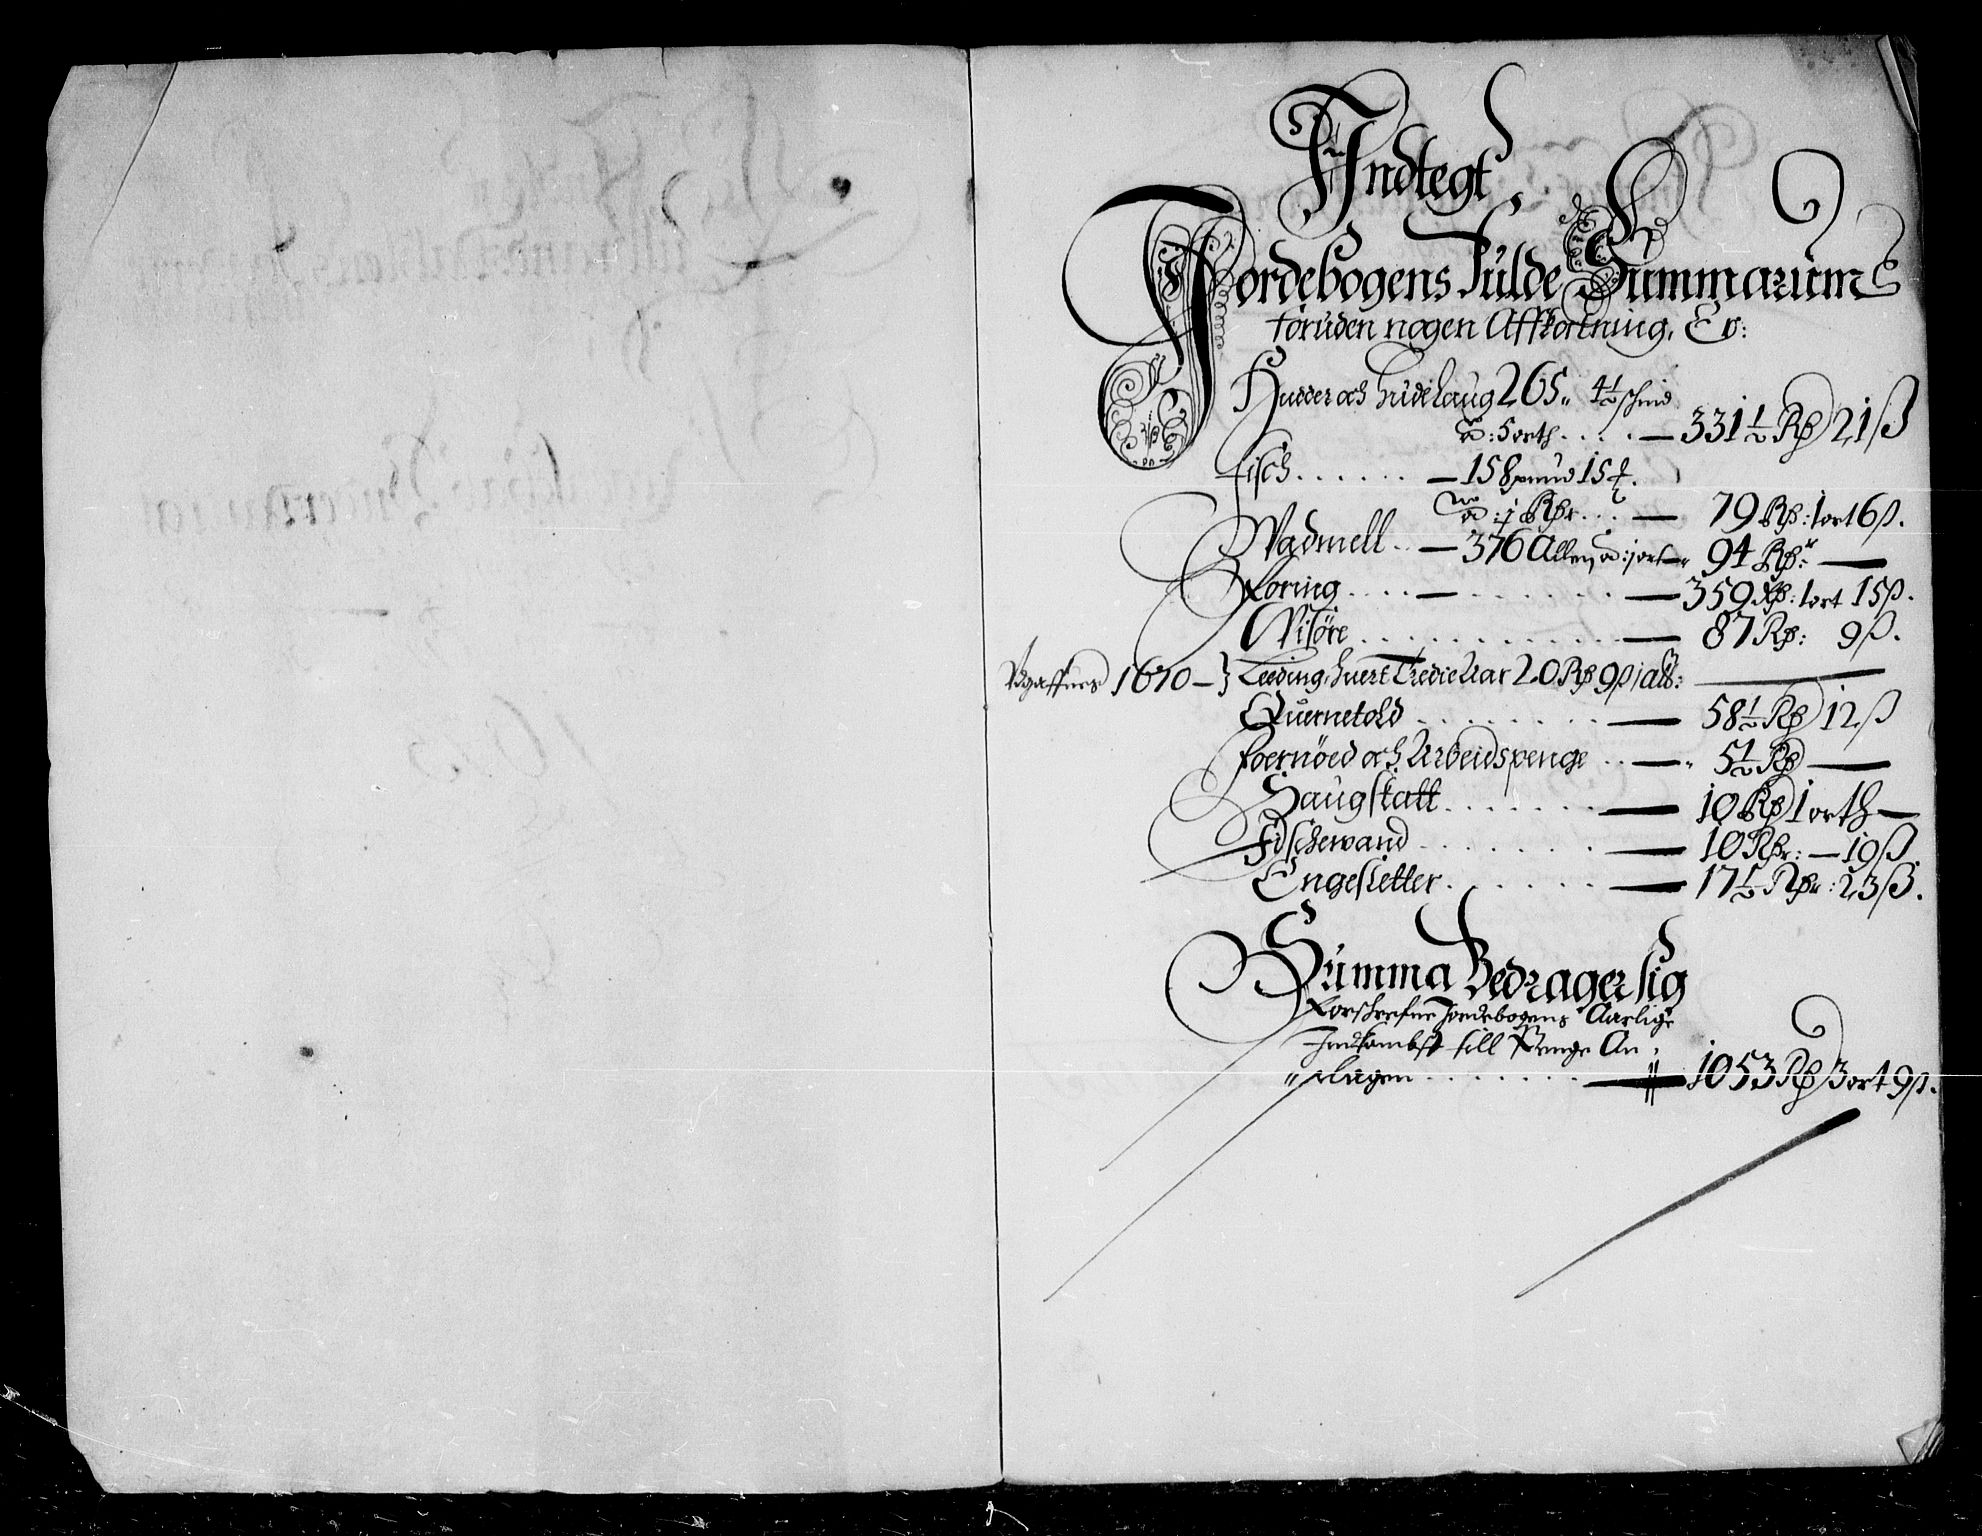 Indtegt
Jordebogens Fulde Summarum
foruden nogen Affkortning, Er:
Huder och hudelaug 265„ 4½ schind
a: 5 orth . . . . — 331½ Rd 21 ß
Fisch . . . . . . — 158 pund 15
a: j Rdr . . . — 79 Rd: 1 ort 6 ß.
Wadmell . . — 376 Allen a: j ort — 94 Rdr —
Foring . . . . — . . . . . . . — 359 Rd: 1 ort 15 ß.
Wisöre . . . . . . . . . . . — 87 Rd: 9 ß.
1670 — } Leeding, huert Tredie Aar 20 Rd 9 ß
Quernetold . . . . . . . . — 58½ Rd 12 ß
Foernöed och Arbeidspenge . . — 5½ Rd —
Saugskatt . . . . . . . — 10 Rd 1 orth —
Fischewand . . . . . . . — 10 Rdr: — 19 ß.
Engesletter . . . . . . — 17½ Rdr: 23 ß.
Summa Bedrager sig
Forschrefne Jordebogens Aarlige
Indkombst till Penge An
„slagen . . . . . . . — 1053 Rd 3 ort 9 ß.